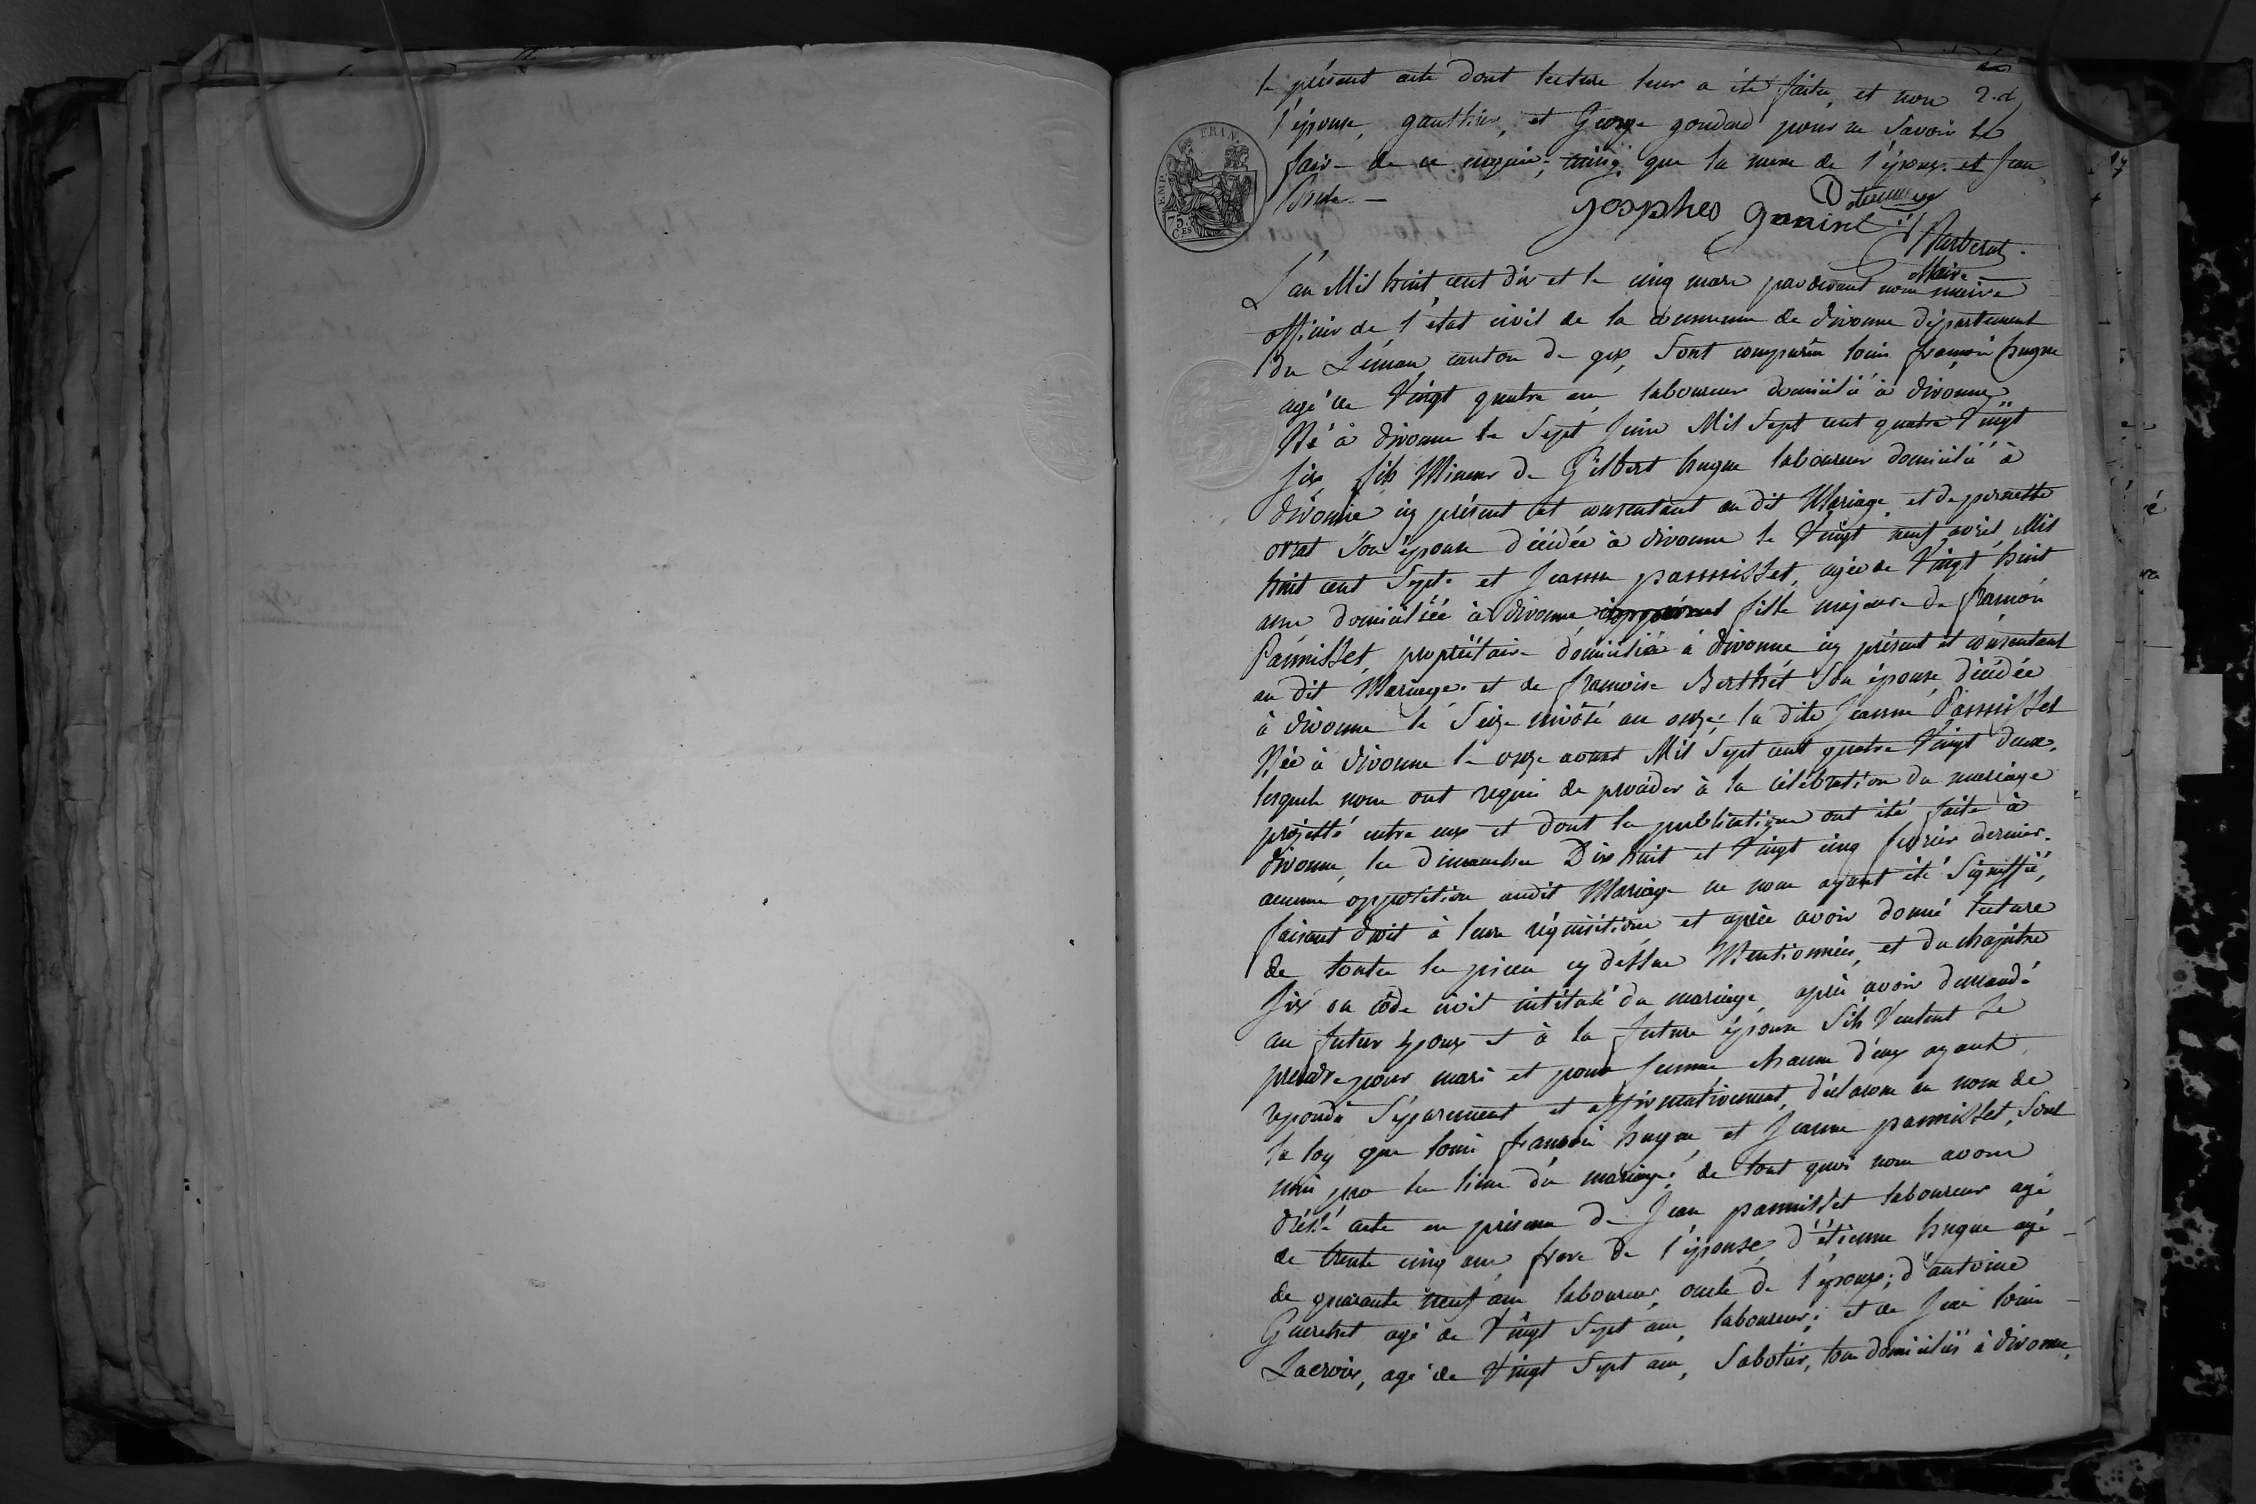 le présent acte dont lecture leur a été faite, et non
l'épouse, gauthier, et George goudard pour ne savoir le
faire de ce enquis, ainsy que la mere de l'époux et Jean
EMP. FRAN.
75. CES
Josphes Ganinet
Barberat
Maire
L'an Mil huit cent dix et le cinq mars pardevant nous maire
officier de l'état civil de la commune de divonne département
du Léman canton de gex, sont comparus louis françois hugue
agé de Vingt quatre ans laboureur domicilié à divonne
Né à divonne le Sept Juin Mil Sept cent quatre Vingt
Six fils Mineur de Gilbert hugue laboureur domicilié à
divonne icy présent et consentant au dit Mariage, et de pernette
orsat son épouse décédée à divonne le Vingt neuf avril Mil
huit cent Sept. et Jeanne pannisset, agée de Vingt huit
ans domiciliée à divonne fille majeure de francois
Pannisset, propriétaire domicilié à divonne icy présent et consentant
au dit Mariage. et de françoise Berthet Son épouse décédée
à divonne le Seize nivôse an onze; la dite Jeanne Pannisset
Née à divonne le onze aoust Mil Sept cent quatre Vingt deux.
lesquels nous ont requis de procéder à la célébration du mariage
projetté entre eux et dont les publications ont été faites à
divonne, les dimanches Dix huit et Vingt cinq fevrier dernier.
aucune opposition audit Mariage ne nous ayant été Signiffié,
faisant droit à leurs réquisitions et après avoir donné lecture
de toutes les pieces cy dessus Mentionnées, et du chapitre
Six du côde civil intitulé du mariage, après avoir demandé
au futur époux et à la future épouse S'ils Veulent Se
prendre pour mari et pour femme chacun d'eux ayant
repondu Séparement et affirmativement, déclarons au nom de
la loy que louis francois hugue, et Jeanne pannisset, Sont
unis par les liens du mariage; de tout quoi nous avons
dréssé acte en présence de Jean pannisset laboureur agé
de trente cinq ans frere de l'épouse, d'étienne hugue agé
de quarante neuf ans laboureur, oncle de l'époux; d'antoine
Guerchet agé de Vingt Sept ans, laboureur; et de Jean louis
Lacroix, agé de Vingt Sept ans, Sabotier, tous domiciliés à divonne,